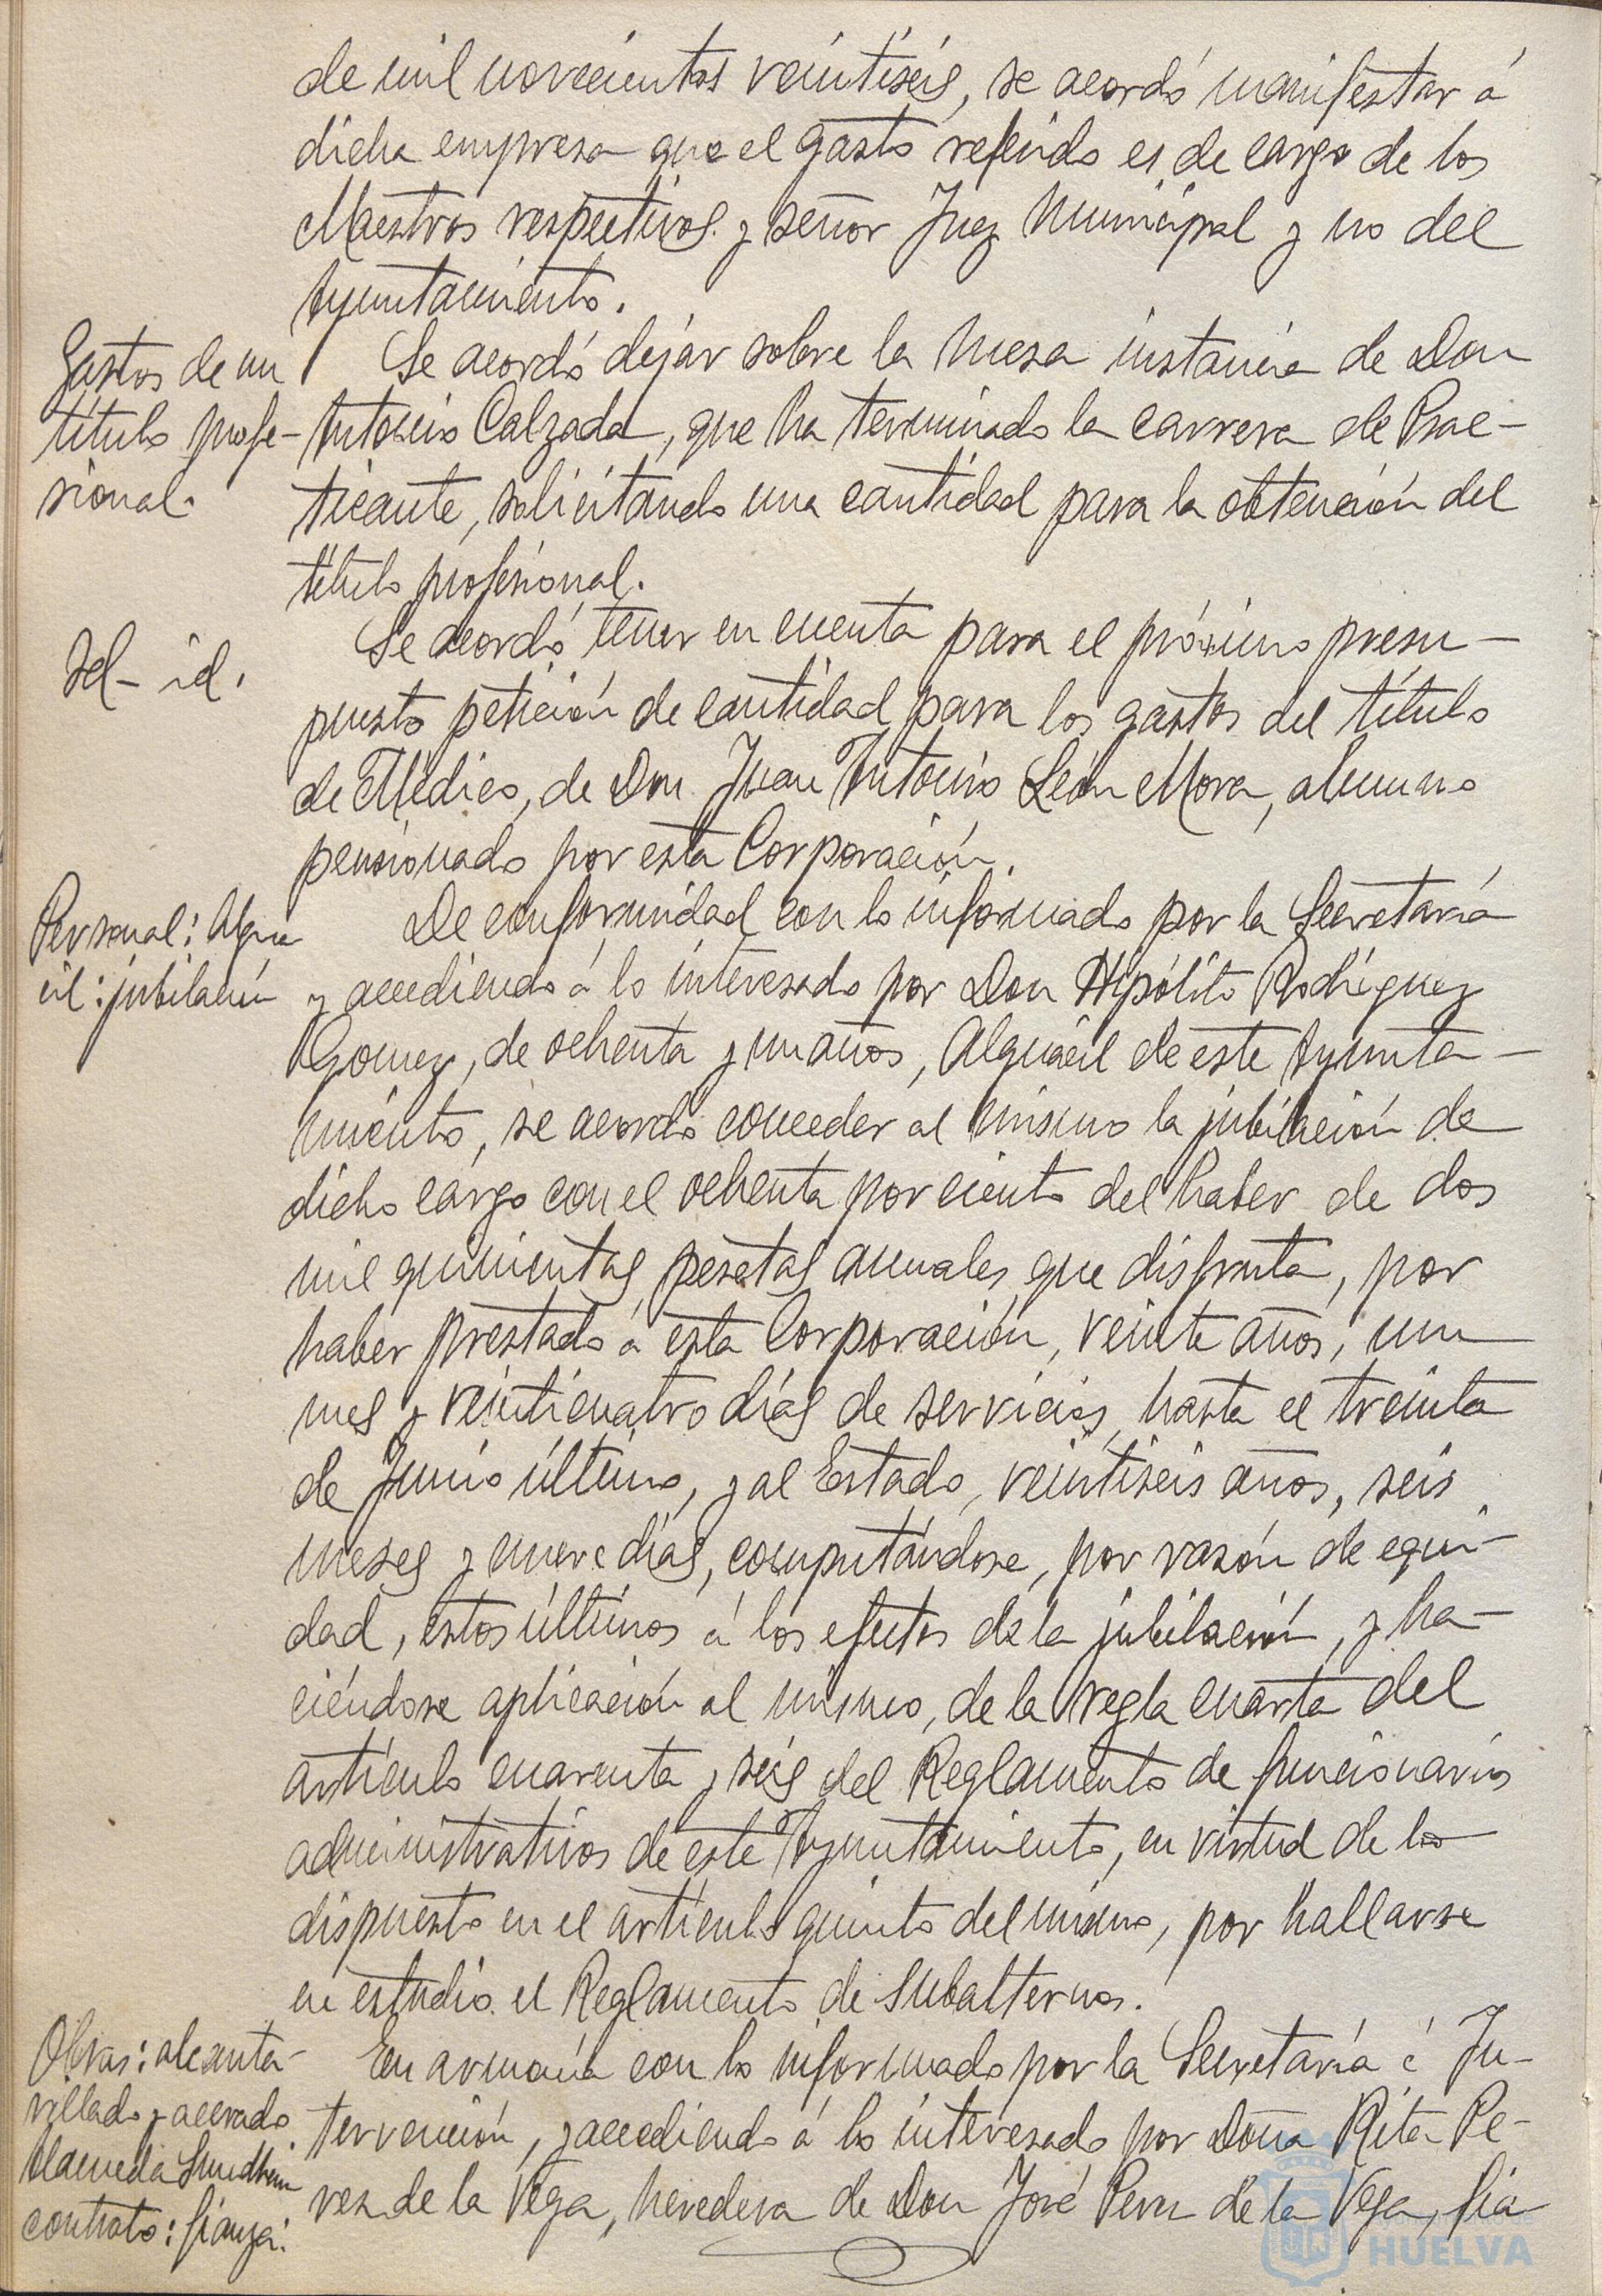 de mil novecientos veintiséis, se acordó manifestar á
dicha empresa que el gasto referido es de cargo de los
Maestros respectivos y señor Juez Municipal y no del
Ayuntamiento.
Gastos de un
título profe-
sional.
Se acordó dejar sobre la mesa instancia de Don
Antonio Calzada, que ha terminado la carrera de Prac-
ticante, solicitando una cantidad para la obtención del
título profesional.
Id- id.
Se acordó tener en cuenta para el próximo presu-
puesto petición de cantidad para los gastos del título
de Médico, de Don Juan Antonio León Mora, alumno
pensionado por esta Corporación.
Personal: Algua
cil: jubilación
De conformidad con lo informado por la Secretaría
y accediendo á lo interesado por Don Hipólito Rodríguez
Gomez, de ochenta y un años, Alguacil de este Ayunta-
miento, se acordó conceder al mismo la jubilación de
dicho cargo con el ochenta por ciento del haber de dos
mil quinientas pesetas anuales que disfruta, por
haber prestado á esta Corporación, veinte años, un
mes y veinticuatro días de servicios, hasta el treinta
de Junio último, y al Estado, veintiseis años, seis
meses y nueve días, computándose, por razón de equi-
dad, estos últimos á los efectos de la jubilación, y ha-
ciéndose aplicación al mismo, de la regla cuarta del
artículo cuarenta y seis del Reglamento de funcionarios
administrativos de este Ayuntamiento, en virtud de lo
dispuesto en el artículo quinto del mismo, por hallarse
en estudio el Reglamento de Subalternos.
Obras: alcanta-
rillado y acerado
Alameda Sundheim
contrato: fianza.
En armonía con lo informado por la Secretaría é In-
tervención, y accediendo á lo interesado por Doña Rita Pe-
rez de la Vega, heredera de Don José Perez de la Vega, fia
HUELVA